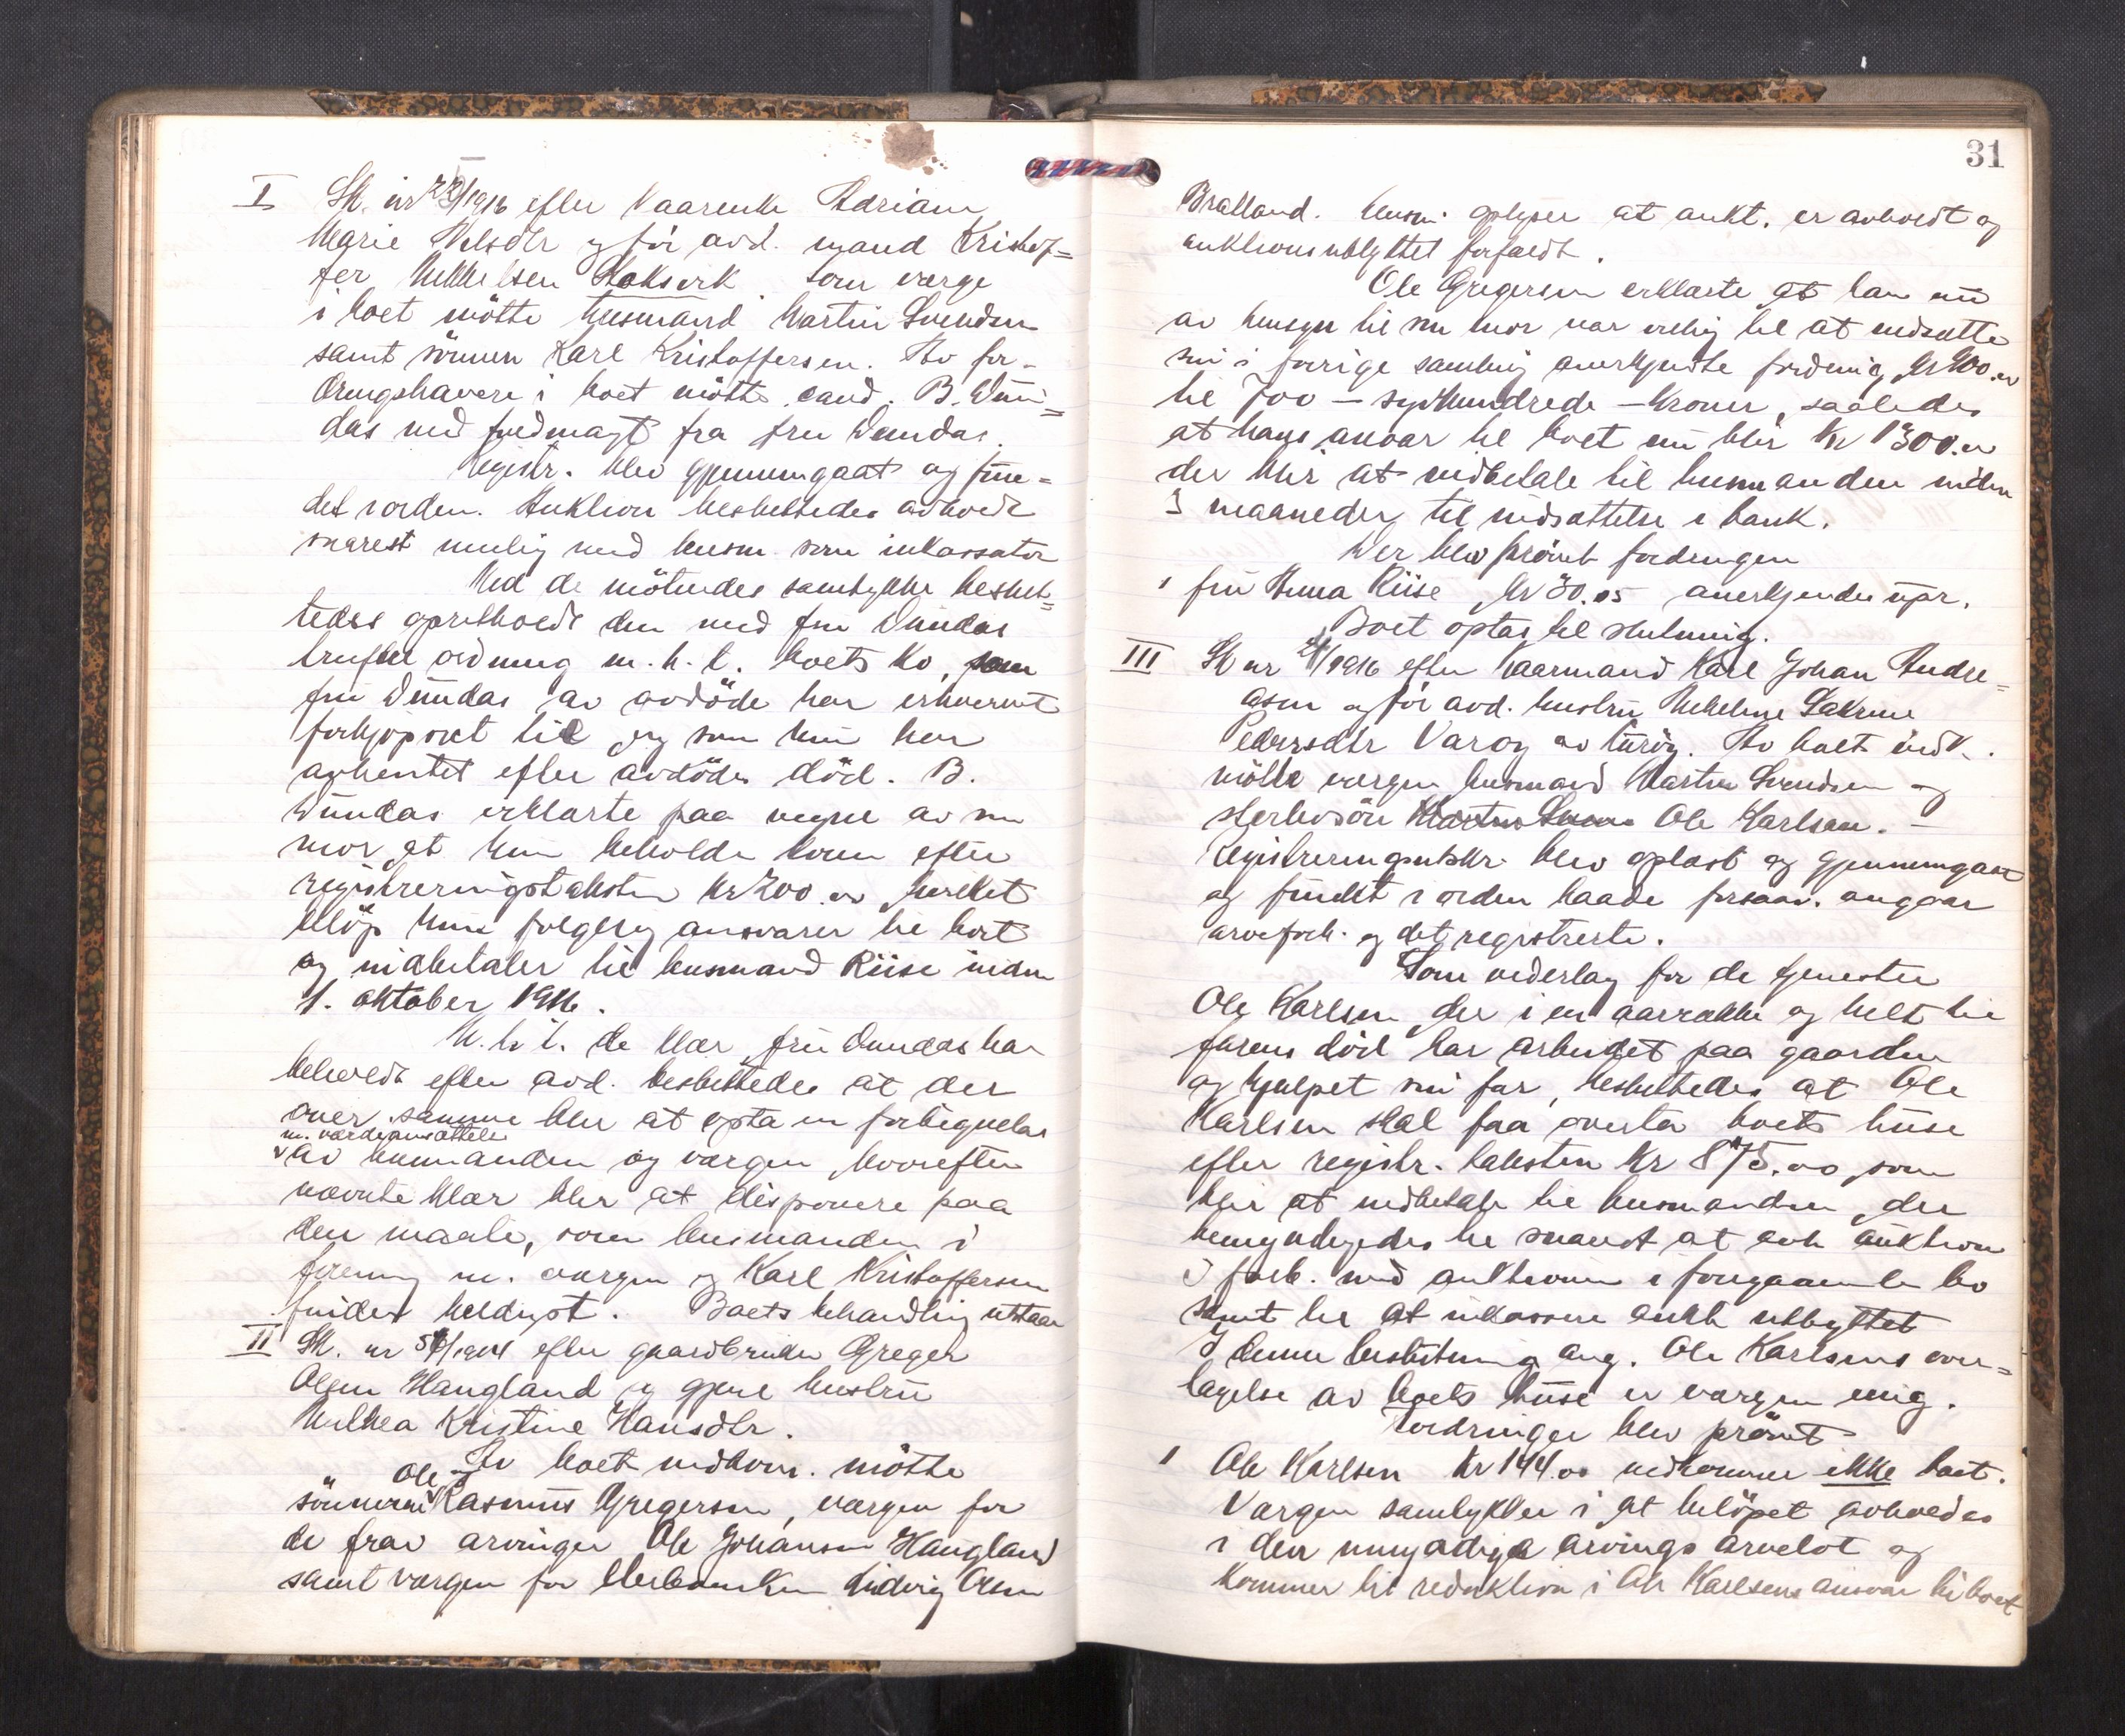 I Sk. nr 22/1916 efter Vaarenke Adriane
Marie Nelsdtr og før avd. mand Kristof=
fer Mikkelsen Stoksvik. Som verge
i boet mötte husmand Martin Svendsen
samt sönnen Karl Kristoffersen. Av for-
dringshavere i boet mötte cand. B. Dun=
das med fuldmagt fra fru Dundas.
Registr. blev gjennemgaat og fun=
det i orden. Auktion besluttedes avholdt
snarest mulig med husm. som inkassator
Ved de mötendes samtykke beslut=
tedes opretholdt den med fru Dundas
trufne ordning m. h. t. boets ko, som
fru Dundas av avdöde har erhvervet
forkjöpsret til og som hun har
avhentet efter avdödes död. B.
Dundas erklærte paa vegne av sin
mor at hun beholder koen efter
registreringstaksten kr 200.00 hvilket
belöp hun folgelig ansvarer til boet
og indbetaler til husmand Riise inden
1. oktober 1916.
M. h. t. de klær fru Dundas har
beholdt efter avd. besluttedes at der
over samme blir at opta en fortegnelse
m. værdiansættelse
av husmanden og vergen hvorefter
nævnte klær blir at disponere paa
den maate, som husmanden i
forening m. vergen og Karl Kristoffersen
finder heldigst. Boets behandling utstaar
II Sk. nr 56/1914 efter gaardbruker Greger
Olsen Haugland og gjenl. hustru
Milkea Kristine Hansdtr.
Av boet vedkom. mötte
Ole og
sönnerne Rasmus Gregersen, vergen for
de frav. arvinger Ole Johansen Haugland
samt vergen for sterbоenken Ludvig Olsen
31
Bratland. Husm. oplyser at aukt. er avholdt og
auktionsutbyttet forfaldt.
Ole Gregersen erklærte at han nu
av hensyn til sin mor var villig til at nedsætte
sin i forrige samling anerkjendte fordring,
til 700 - syvhundrede - kroner, saaledes
at hans ansvar til boet nu blir kr 1300.00
der blir at indbetale til husmanden inden
3 maaneder til indsættelse i bank.
Der blev prövet fordringen
1 fru Anna Riise kr 30.05 anerkjendes upr.
Boet optas til slutning.
III Sk nr /1916 efter kaarmand Karl Johan Andre=
asen og før avd. hustru Sakrine
Pedersdtr Varøy av Av boet vedk.
mötte vergen husmand Martin Svendsen og
sterbosön Martin Svend Ole Karlsen. -
Registreringsutskr. blev oplæst og gjennemgaat
og fundet i orden baade forsaav. angaar
arveforh. og det registrerte.
Som vederlag for de tjenester
Ole Karlsen der i en aarrække og helt til
farens död har arbeidet paa gaarden
og hjulpet sin far, besluttedes at Ole
Karlsen skal faa overta boets huse
efter registr. taksten kr 875.00 som
blir at indbetale til husmanden der
bemyndigedes til snarest at avh. auktion
I forb. med auktionen i foregaaende bo
samt til at inkassere aukt. utbyttet
I denne beslutning ang. Ole Karlsens over=
tagelse av boets huse er vergen enig.
Fordringer blev prövet
1 Ole Karlsen kr 144.00 vedkommer ikke boet.
Vergen samtykker i at belöpet avholdes
i den umyndige arvings arvelot og
kommer til reduktion i Ole Karlsens ansvar til boet